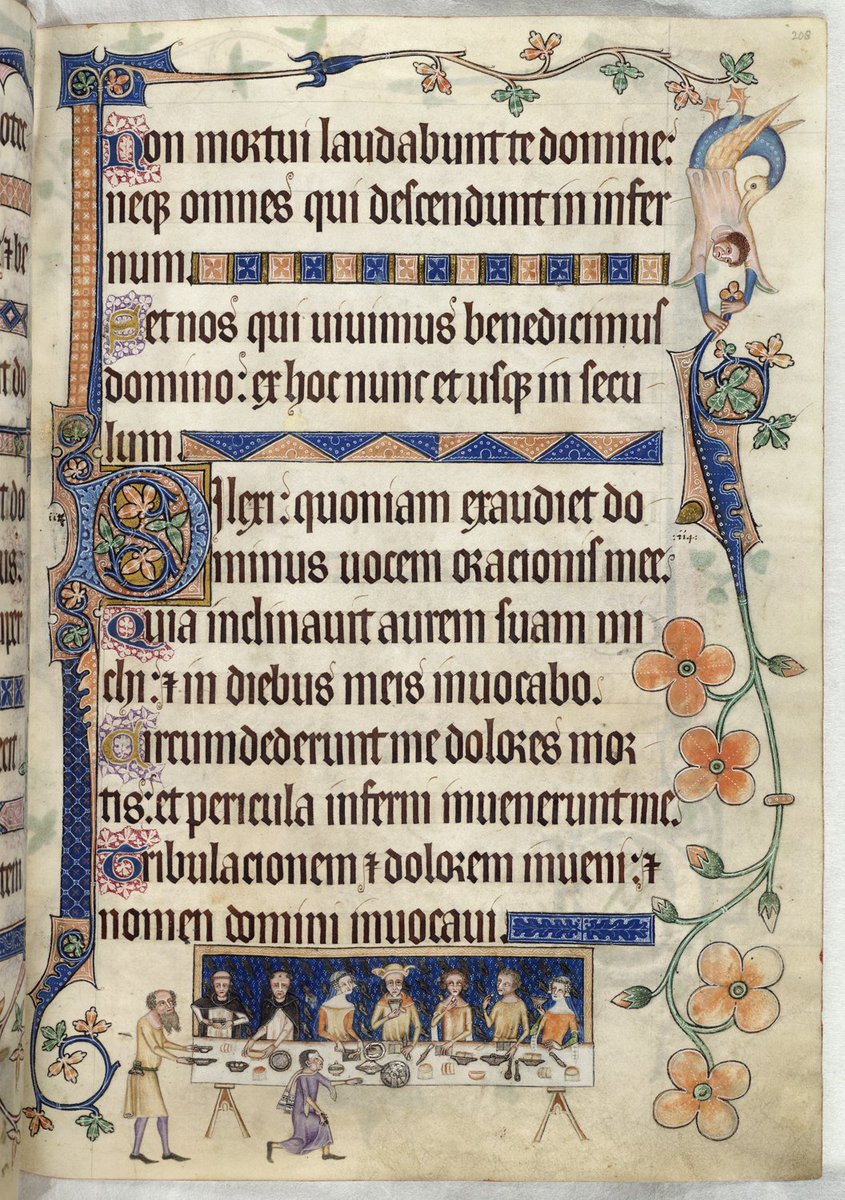 208
Non mortui laudabunt te domine:
neq; omnes qui descendunt in infer
num.
Set nos qui vivimus benedicimus
domino: ex hoc nunc et usq; in secu
lum.
Dilexi: quoniam exaudiet do
minus uocem oracionis mee.
Quia inclinavit aurem suam mi
chi: ⁊ in diebus meis inuocabo.
Circumdederunt me dolores mor
tis: et pericula inferni inuenerunt me.
Tribulacionem ⁊ dolorem inueni: ⁊
nomen domini inuocaui.